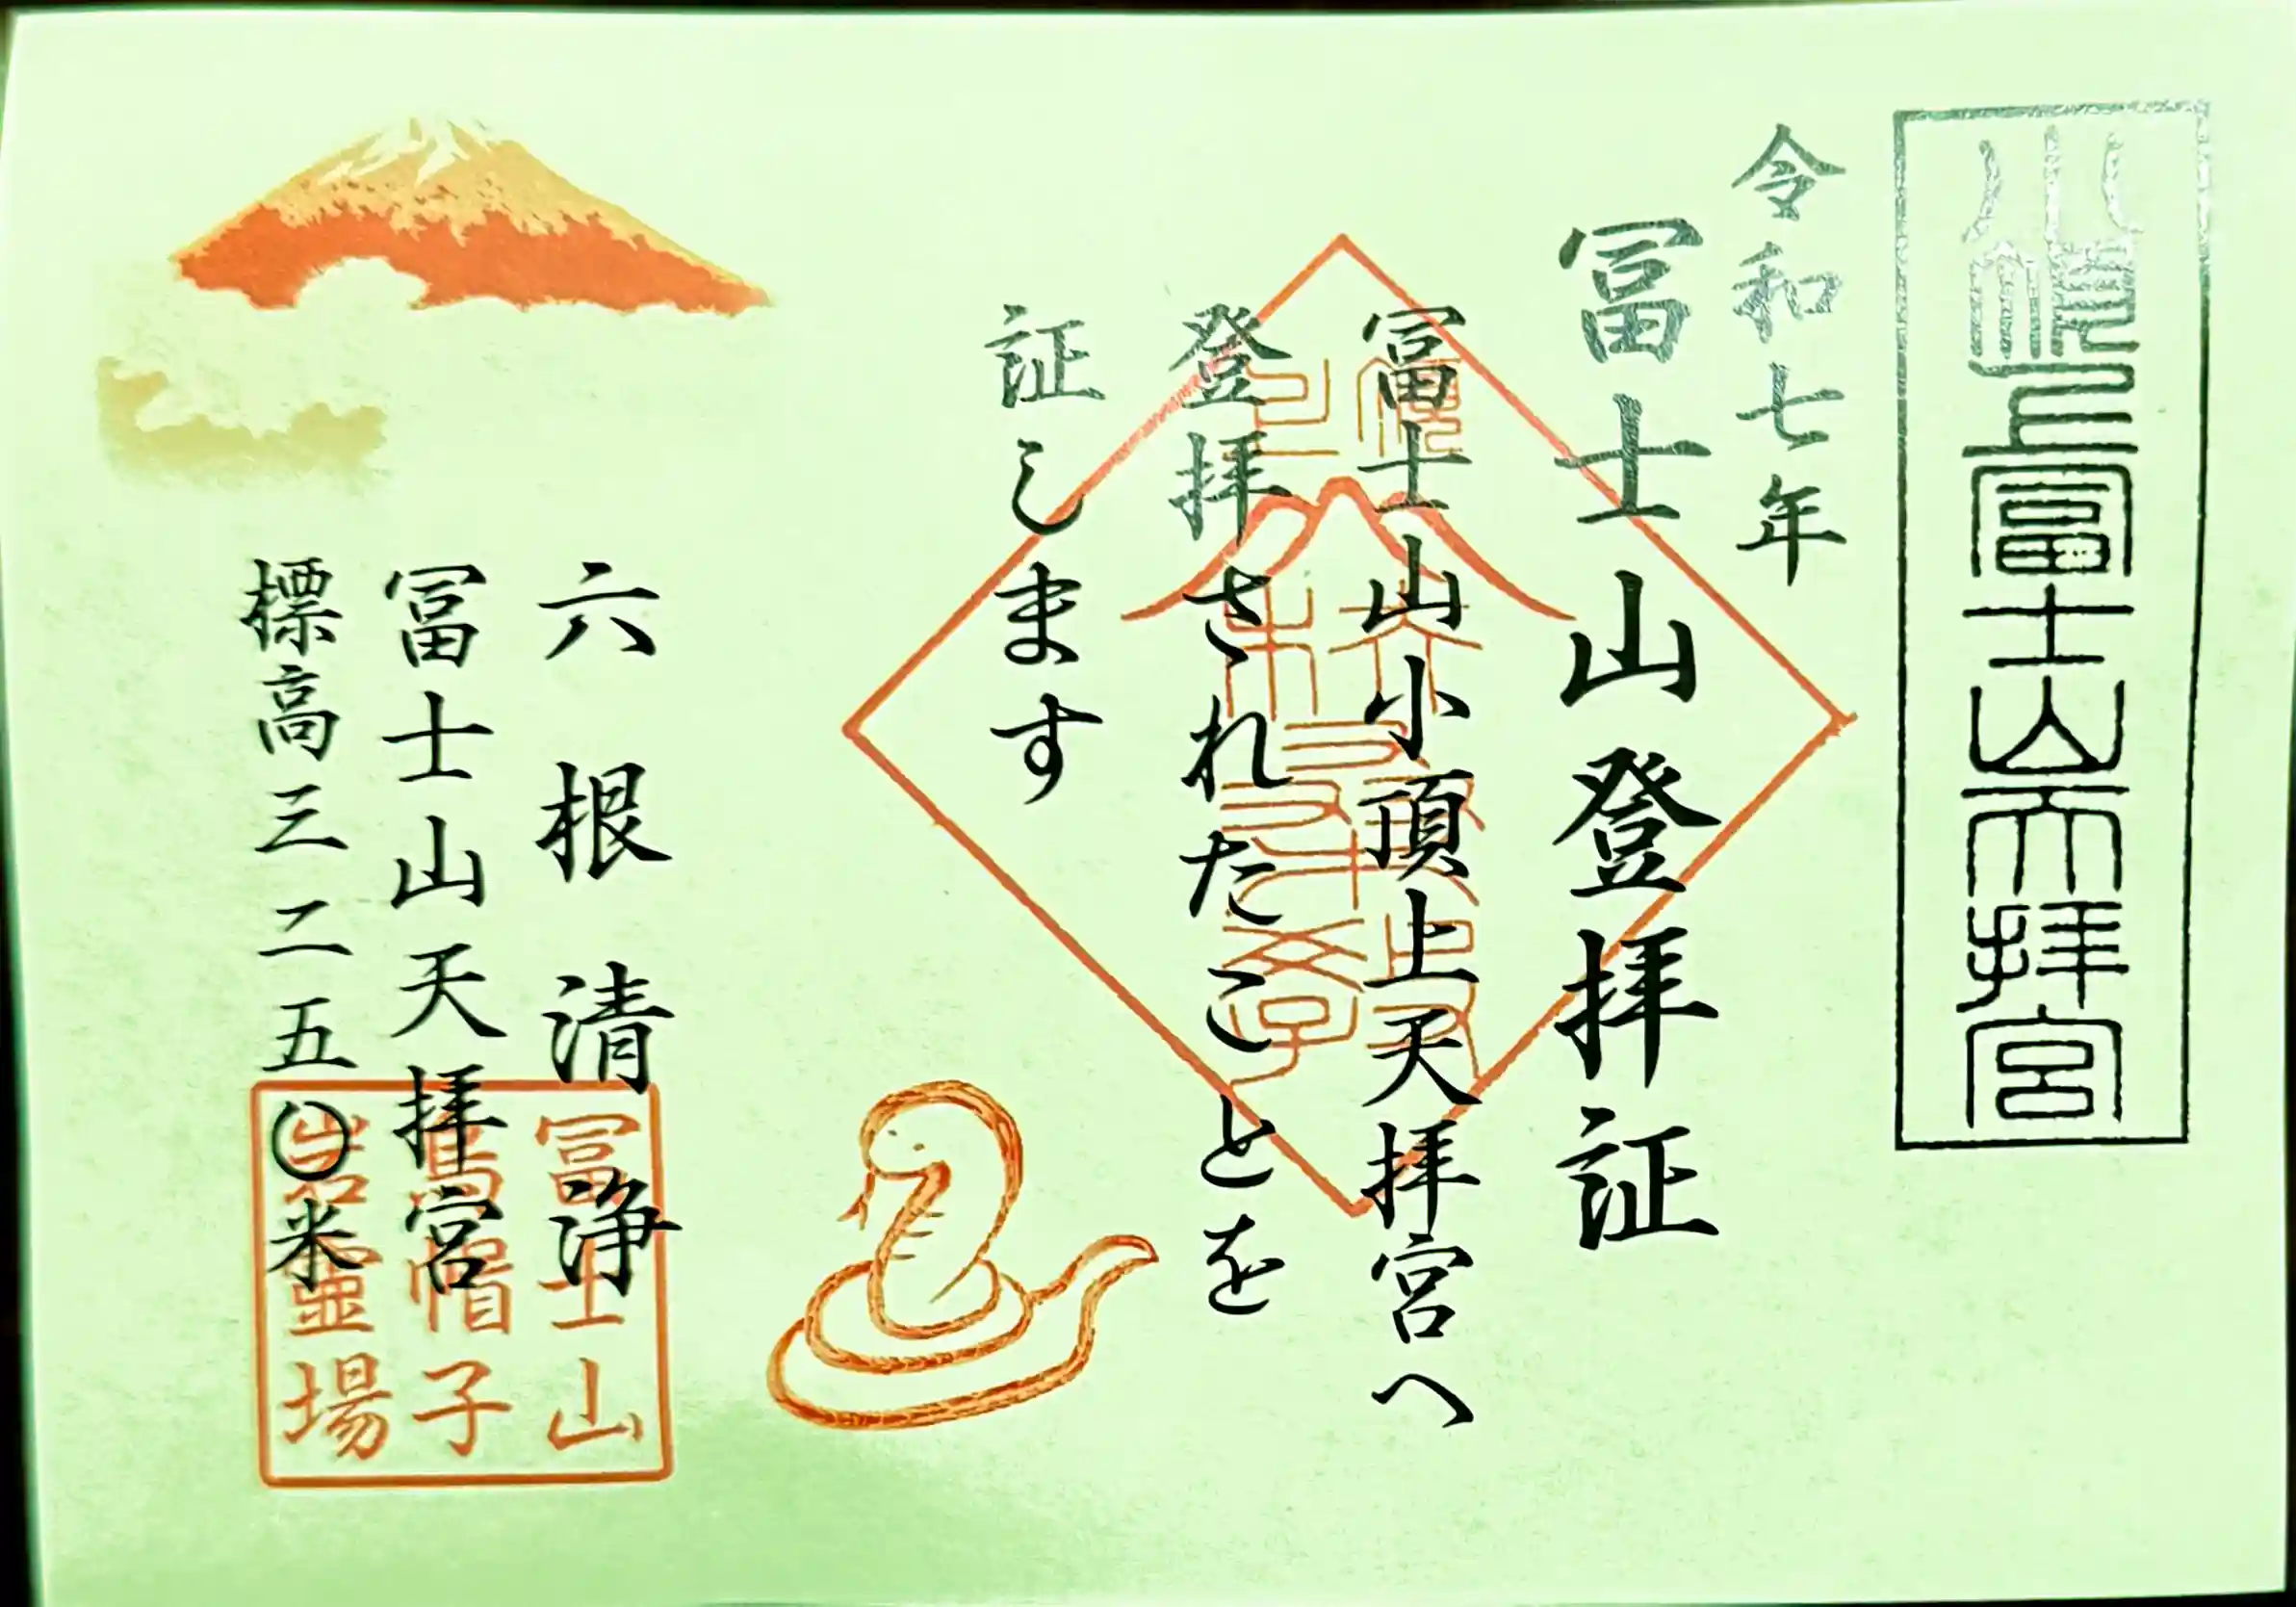 小頂上冨士山天拝宮
令和七年
冨士山登拝証
冨士山小頂上天拝宮へ
登拝されたことを
証します
六根清浄
冨士山天拝宮
標高三二五〇米
冨士山
烏帽子
岩霊場